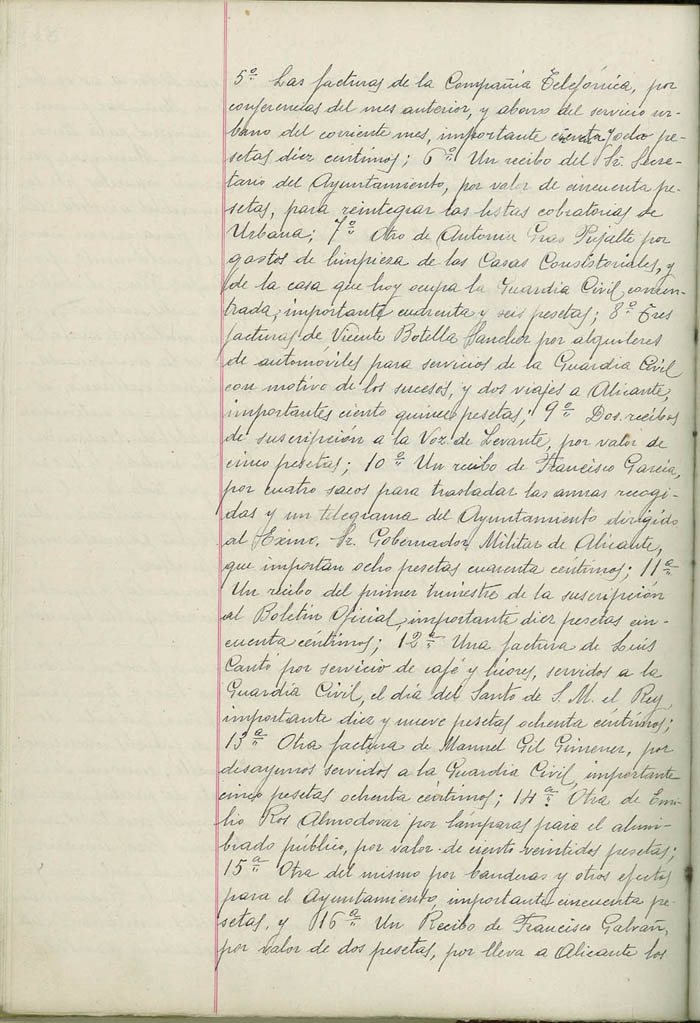 5º Las facturas de la Compañia Telefónica, por
conferencias del mes anterior, y abono del servicio ur-
bano del corriente mes, importante y ocho pe-
setas diez céntimos; 6º Un recibo del Sr. Secre-
tario del Ayuntamiento, por valor de cincuenta pe-
setas, para reintegrar las listas cobratorias de
Urbana; 7º Otro de Antonia Gras Pujalte por
gastos de limpieza de las Casas Consistoriales, y
de la casa que hoy ocupa la Guardia Civil concen-
trada, importante cuarenta y seis pesetas; 8º Tres
facturas de Vicente Botella Sanchez por alquileres
de automóviles para servicios de la Guardia Civil
con motivo de los sucesos, y dos viajes a Alicante,
importantes ciento quince pesetas; 9º Dos recibos
de suscripción a la Voz de Levante, por valor de
cinco pesetas; 10º Un recibo de Francisco Garcia,
por cuatro sacos para trasladar las armas recogi-
das y un telegrama del Ayuntamiento dirigido
al Exmo. Sr. Gobernador Militar de Alicante,
que importan ocho pesetas cuarenta céntimos; 11ª
Un recibo del primer trimestre de la suscripción
al Boletin Oficial, importante diez pesetas cin-
cuenta céntimos; 12ª Una factura de Luis
Cantó por servicio de café y licores, servidos a la
Guardia Civil, el día del Santo de S. M. el Rey,
importante diez y nueve pesetas ochenta céntimos;
13ª Otra factura de Manuel Gil Gimenez, por
desayunos servidos a la Guardia Civil, importante
cinco pesetas ochenta céntimos; 14ª Otra de Emi-
lio Ros Almodovar por lámparas para el alum-
brado público, por valor de ciento veintidos pesetas;
15ª Otra del mismo por banderas y otros efectos
para el Ayuntamiento, importante cincuenta pe-
setas, y 16ª Un Recibo de Francisco Galvañ,
por valor de dos pesetas, por lleva a Alicante los